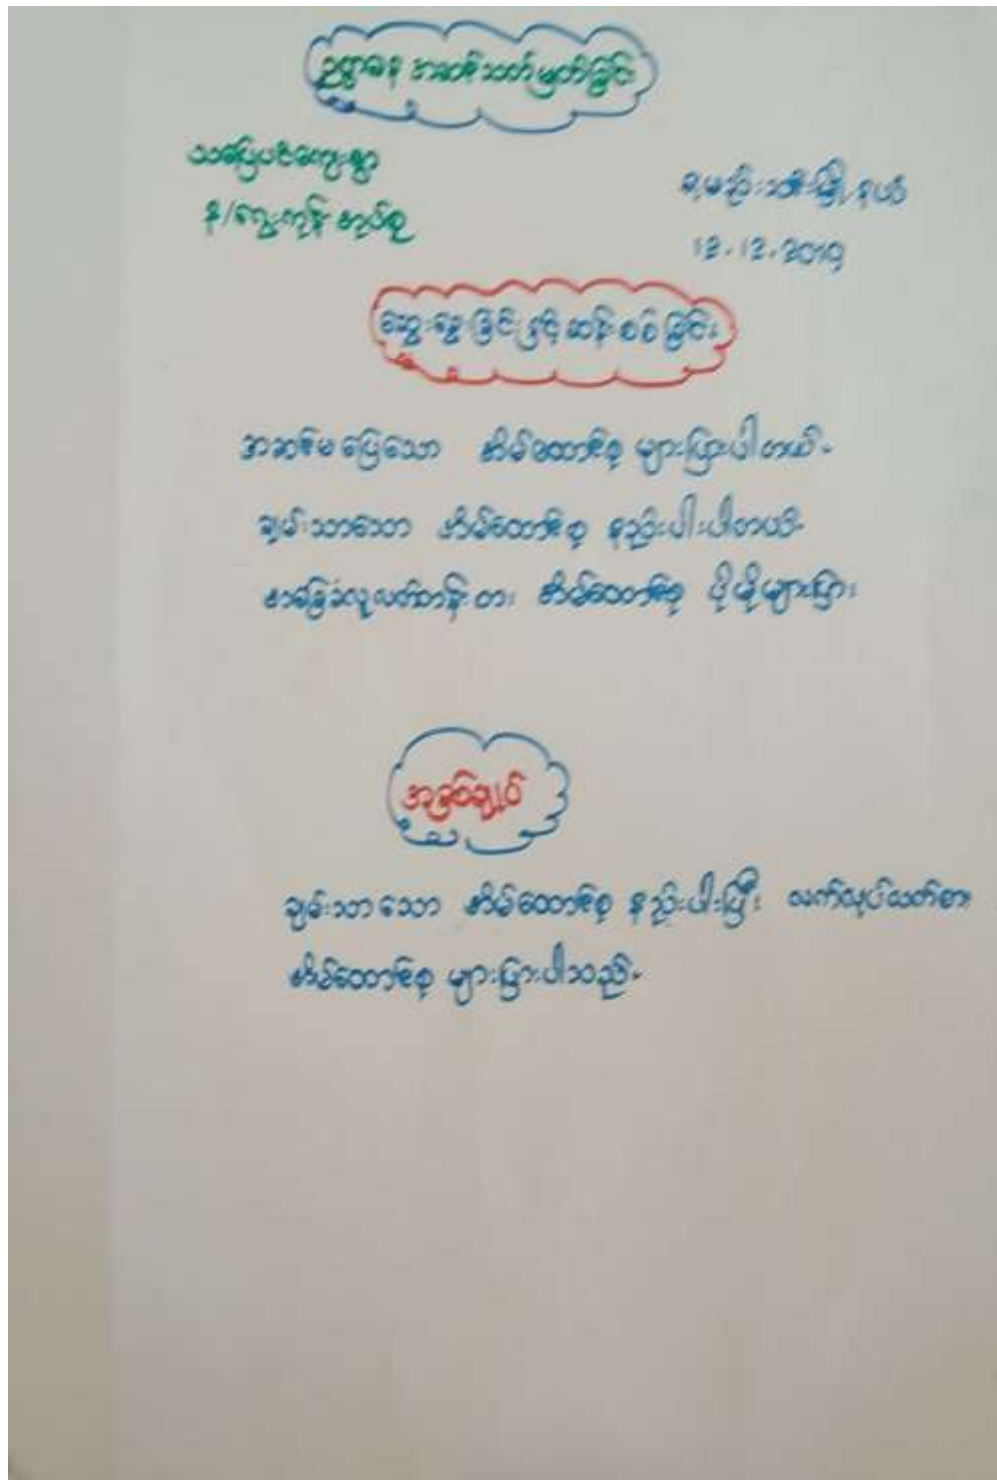 ဥစ္စာဓန အဆင့်သတ်မှတ်ခြင်း
သပြေပင်ကျေးရွာ
န/ကွေးကုန်းအုပ်စု
ခမည်းသာမြို့နယ်
12.12.2019
ဆွေးနွေးခြင်းနှင့်ဆန်းစစ်ခြင်း
အဆင်မပြေသော အိမ်ထောင်စု များပြားပါတယ်။
ချမ်းသာသော အိမ်ထောင်စု နည်းပါးပါတယ်။
အခြေခံလူလတ်တန်းစား အိမ်ထောင်စု ပိုမိုများပြား
အနှစ်ချုပ်
ချမ်းသာသော အိမ်ထောင်စု နည်းပါးပြီး လက်လုပ်လက်စား
အိမ်ထောင်စု များပြားပါသည်။